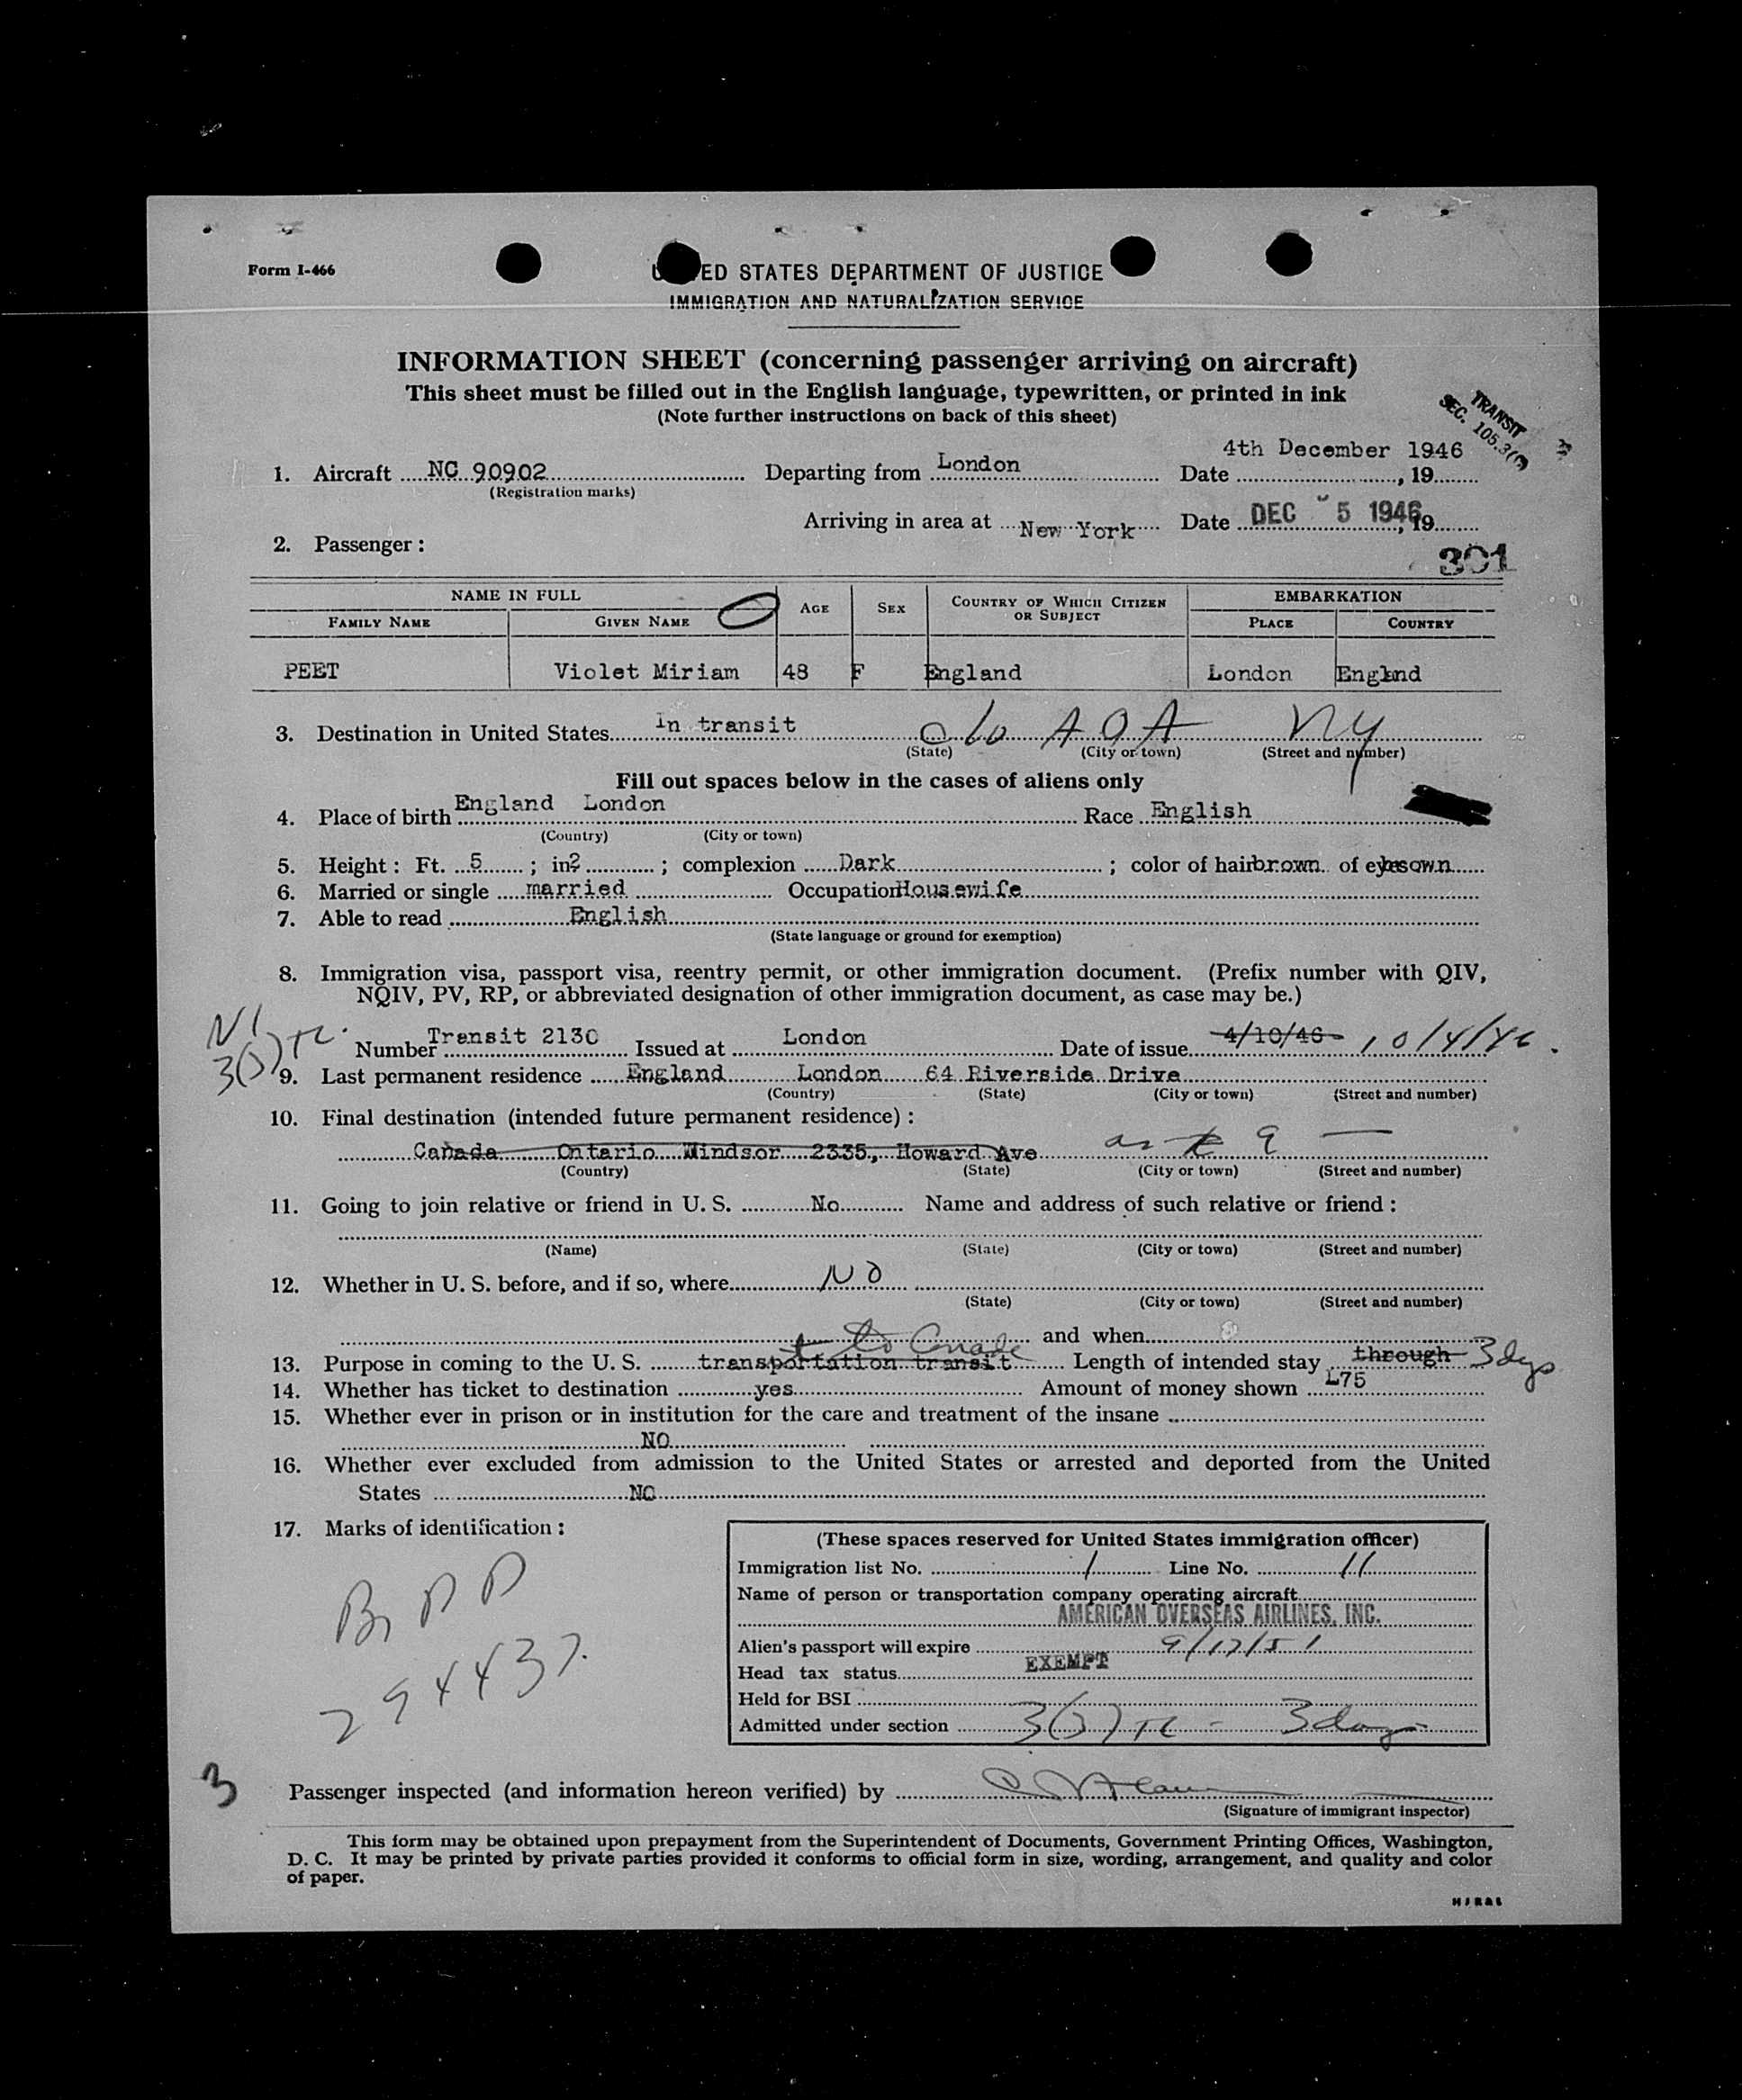 Form I-466
ED STATES DEPARTMENT OF JUSTICE
IMMIGRATION AND NATURALIZATION SERVICE
INFORMATION SHEET (concerning passenger arriving on aircraft)
This sheet must be filled out in the English language, typewritten, or printed in ink
(Note further instructions on back of this sheet)
TRANSIT
SEC. 105.3
1. Aircraft NC 90902 Departing from London Date 4th December 1946, 19
(Registration marks)
Arriving in area at New York Date DEC 5 1946, 19
2. Passenger:
301
NAME IN FULL AGE SEX COUNTRY OF WHICH CITIZEN OR SUBJECT EMBARKATION
FAMILY NAME GIVEN NAME PLACE COUNTRY
PEET Violet Miriam 48 F England London Englnd
3. Destination in United States in transit c/o A O A NY
(State) (City or town) (Street and number)
Fill out spaces below in the cases of aliens only
4. Place of birth England London Race English
(Country) (City or town)
5. Height: Ft. 5; in 2; complexion Dark; color of hair brown of eyes brown
6. Married or single married Occupation Housewife
7. Able to read English
(State language or ground for exemption)
8. Immigration visa, passport visa, reentry permit, or other immigration document. (Prefix number with QIV,
NQIV, PV, RP, or abbreviated designation of other immigration document, as case may be.)
Number Transit 2130 Issued at London Date of issue 4/10/46 10/4/46.
9. Last permanent residence England London 64 Riverside Drive
(Country) (State) (City or town) (Street and number)
10. Final destination (intended future permanent residence):
Canada Ontario Windsor 2335, Howard Ave as to 9
(Country) (State) (City or town) (Street and number)
11. Going to join relative or friend in U. S. No Name and address of such relative or friend:
(Name) (State) (City or town) (Street and number)
12. Whether in U. S. before, and if so, where NO
(State) (City or town) (Street and number)
and when
13. Purpose in coming to the U. S. transportation transit to Canada Length of intended stay through 3 dys
14. Whether has ticket to destination yes Amount of money shown L75
15. Whether ever in prison or in institution for the care and treatment of the insane
NO
16. Whether ever excluded from admission to the United States or arrested and deported from the United
States NO
17. Marks of identification:
(These spaces reserved for United States immigration officer)
Immigration list No. 1 Line No. 11
Name of person or transportation company operating aircraft
AMERICAN OVERSEAS AIRLINES, INC.
Alien's passport will expire 9/17/51
Head tax status EXEMPT
Held for BSI
Admitted under section 3(3) TC - 3 days
294437.
3
Passenger inspected (and information hereon verified) by
(Signature of immigrant inspector)
This form may be obtained upon prepayment from the Superintendent of Documents, Government Printing Offices, Washington,
D. C. It may be printed by private parties provided it conforms to official form in size, wording, arrangement, and quality and color
of paper.